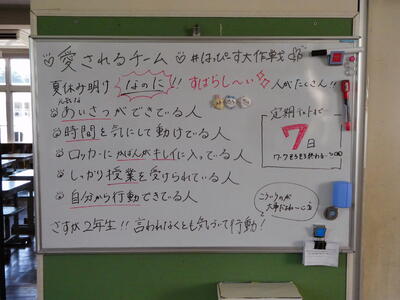 愛されるチーム #はっぴ大作戦
夏休み明け なのに!! すばらし〜い 人がたくさん!!
あいさつができている人
時間を気にして動けている人
ロッカーにかばんがキレイに入っている人
しっかり授業を受けられている人
自分から行動できている人
さすが2年生!! 言われなくとも気づいて行動!
定期テストまで
7
日
こういうのが
大事だよね〜